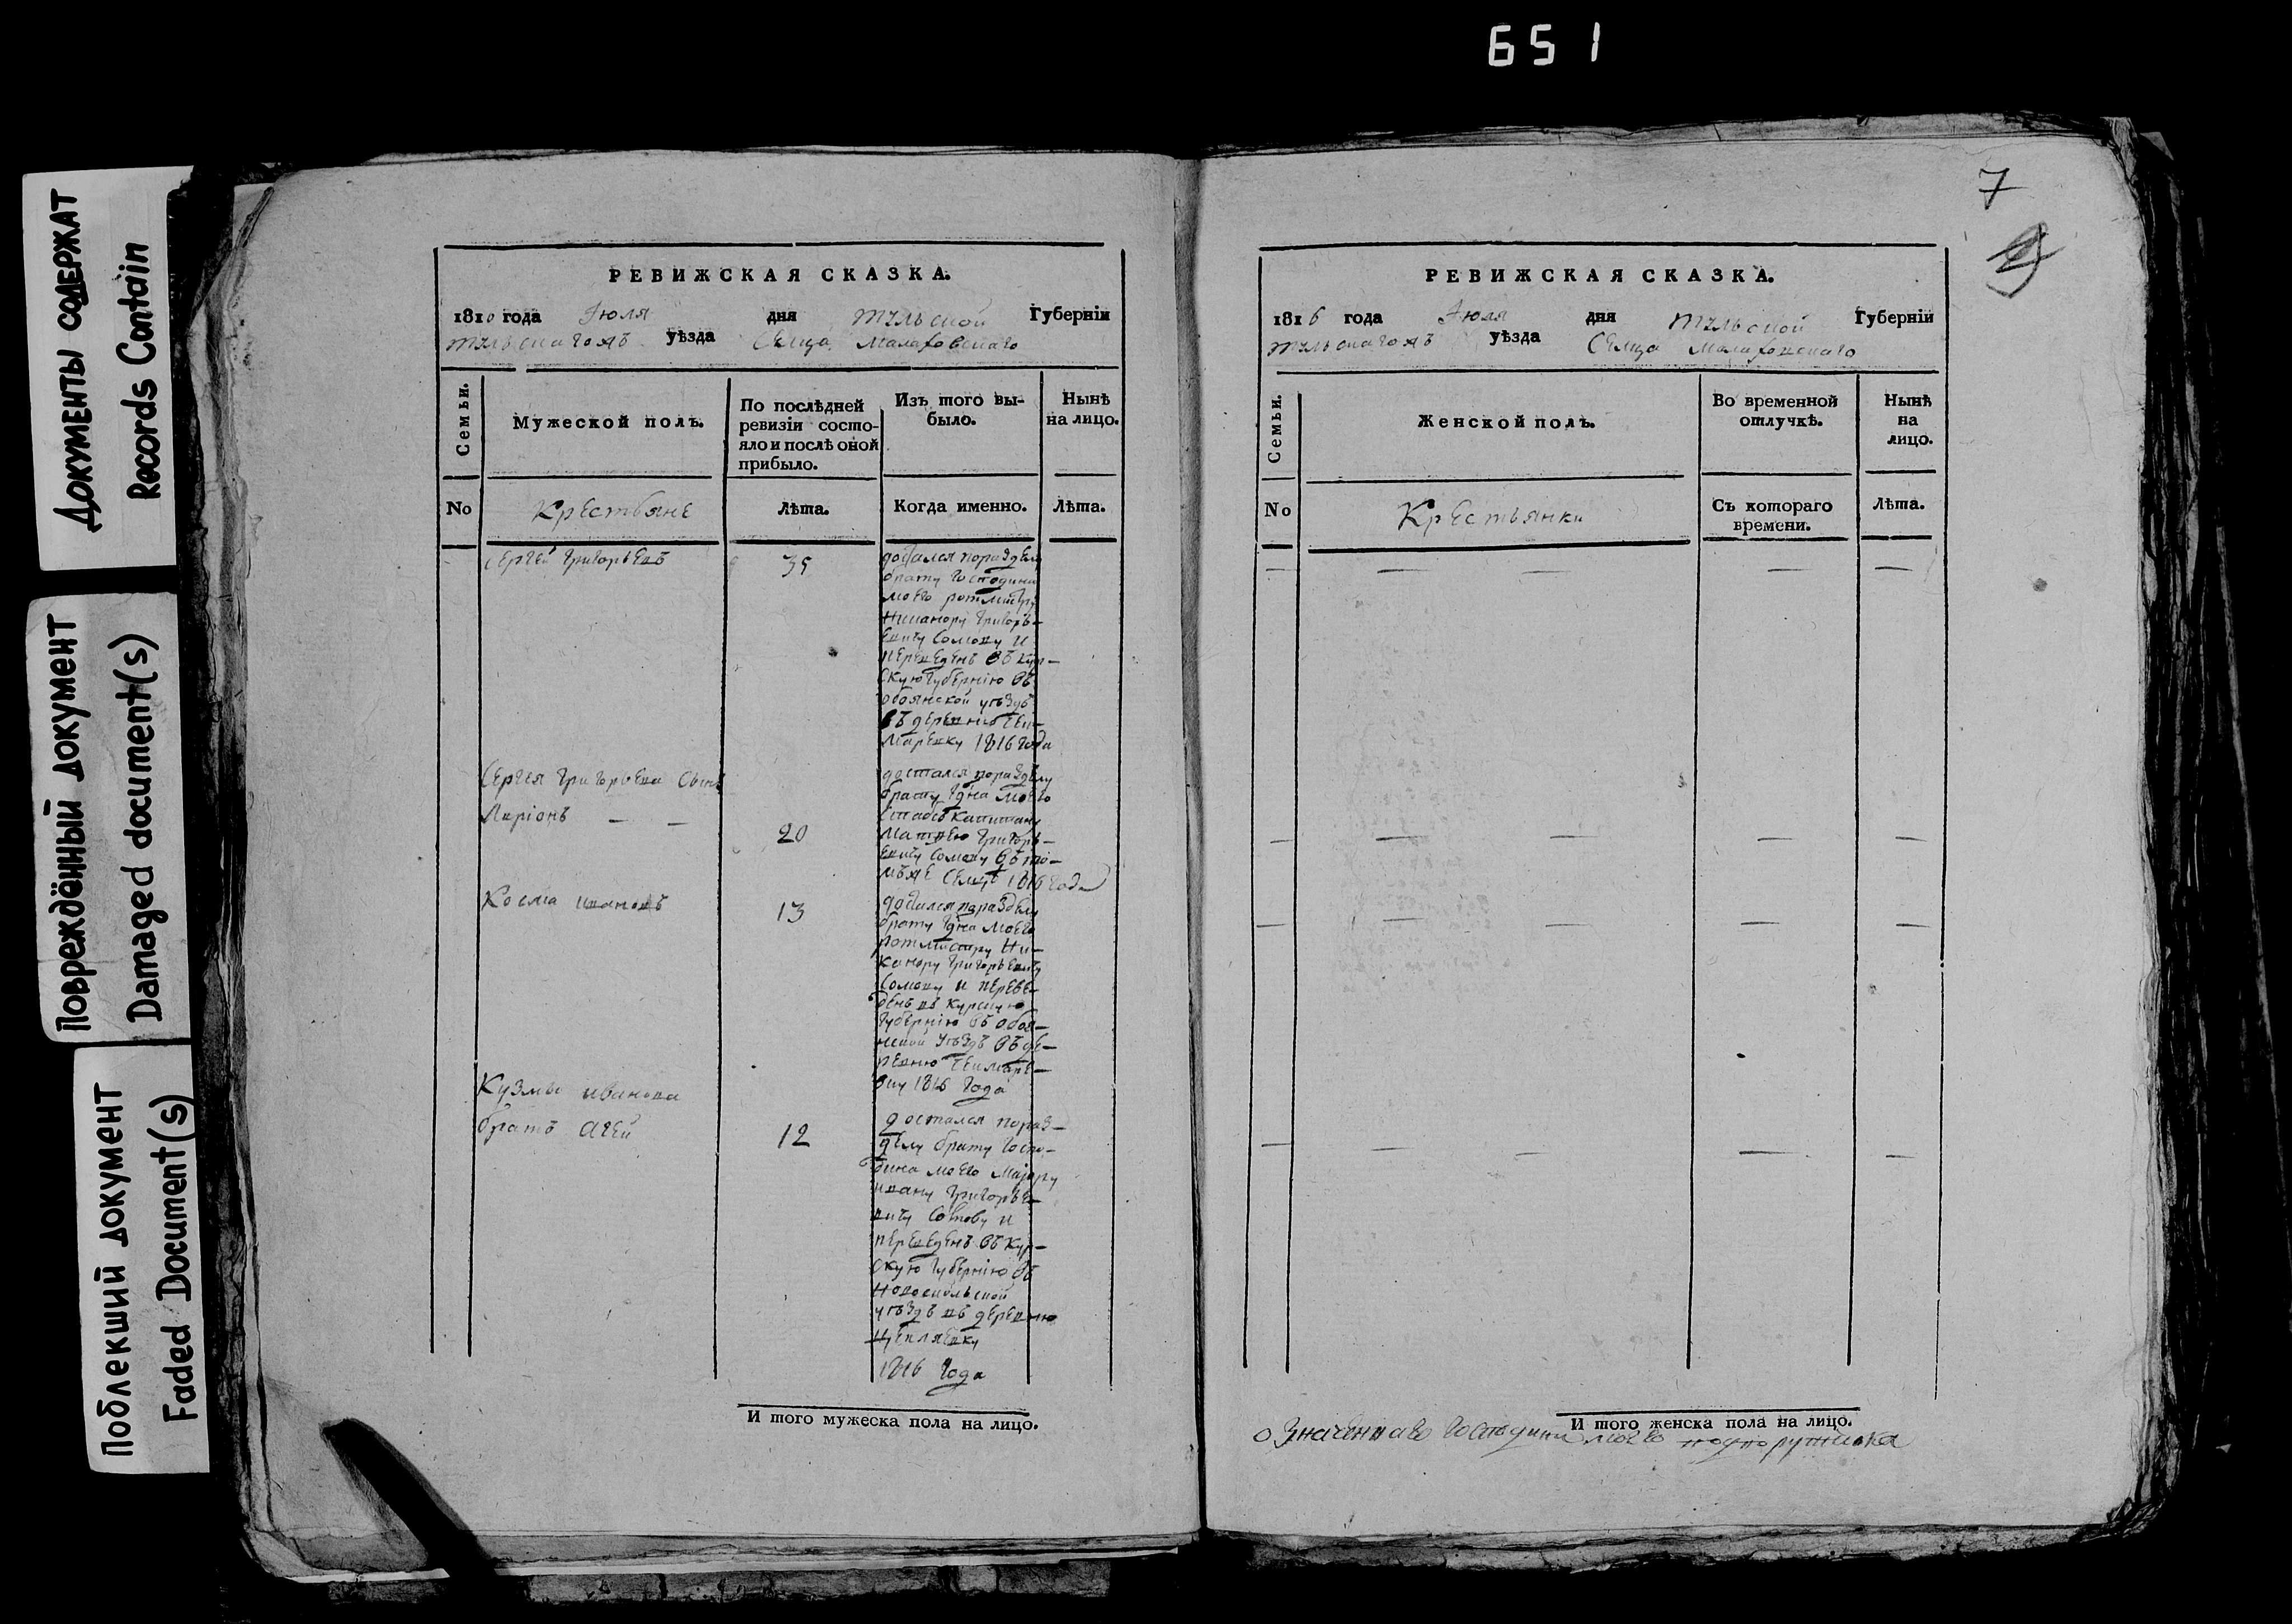 651
Документы содержат
Records Contain
Повреждённый документ
Damaged document(s)
Поблекший документ
Faded Document(s)
РЕВИЖСКАЯ СКАЗКА.
181 года Июля дня тульской Губернїи
тульскагожъ уѣзда Сельца Малаховскаго
Семьи.
Мужеской полъ.
По послѣдней
ревизїи состо-
яло и послѣ оной
прибыло.
Изъ того вы-
было.
Нынѣ
на лицо.
No
Крестьяне
Лѣта.
Когда именно.
Лѣта.
Сергей Григорьевъ
35
достался поразделу
брату Господина
моего ротмистру
Никанору Григорь-
евичу Сомову и
переведенъ въ кур-
скую Губернїю въ
обоянской уѣздъ
въ деревню
1816 года
Сергея Григорьева Сынъ
Ларіонъ — —
20
достался поразделу
брату Гдна моего
Штабс Капитану
Матвею Григорь-
евичу Сомову въ то-
мъже Сельце 1816 года
Косма ивановъ
13
достался поразделу
брату Гдна моего
ротмистру Ни-
канору Григорьевичу
Сомову и переве-
денъ въ курскую
Губернїю въ обоя-
нской уѣздъ въ де-
ревню
1816 года
Кузмы иванова
братъ Агей
12
достался пораз-
делу брату Госпо-
дина моего Маіору
ивану Григорье-
вичу Сомову и
переведенъ въ кур-
скую Губернїю въ
Новосильской
уѣздъ въ деревню
1816 года
И того мужеска пола на лицо.
7
РЕВИЖСКАЯ СКАЗКА.
1816 года Июля дня тульской Губернїи
тульскагожъ уѣзда Сельца Малаховскаго
Семьи.
Женской полъ.
Во временной
отлучкѣ.
Нынѣ
на
лицо.
No
Крестьянки
Съ котораго
времени.
Лѣта.
И того женска пола на лицо.
означеннаго Господина моего подпорутчика